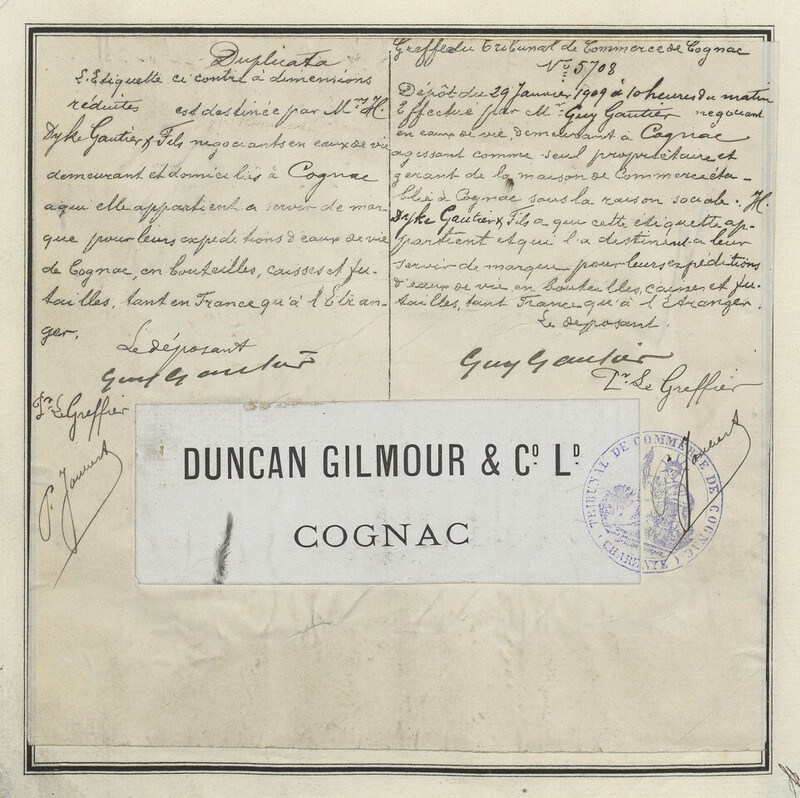 Duplicata
L'Etiquette ci contre à dimensions
réduites est destinée par Mm. H.
Dyke Gautier & Fils negociants en eaux de vie
demeurant et domiciliés à Cognac
a qui elle appartient a servir de mar-
que pour leurs expéditions d'eaux de vie
de Cognac, en bouteilles, caisses et fu-
tailles, tant en France qu'à l'Etran-
ger.
Le déposant
Guy Gautier
Pr. Le Greffier
P. Jaunet
Greffe du Tribunal de Commerce de Cognac
No. 5708
Dépôt du 29 Janvier 1909 à 10 heures du matin
Effectué par Mr. Guy Gautier négociant
en eaux de vie, demeurant à Cognac
agissant comme seul propriétaire et
gérant de la maison de Commerce éta-
blie à Cognac sous la raison sociale. H.
Dyke Gautier & Fils a qui cette étiquette ap-
partient et qui l'a destinent a leur
servir de marque pour leurs expéditions
d'eaux de vie en bouteilles, caisses et fu-
tailles, tant France qu'à l'Etranger.
Le déposant.
Guy Gautier
Pr. Le Greffier
DUNCAN GILMOUR & Co. Ld.
COGNAC
TRIBUNAL DE COMMERCE DE COGNAC
(CHARENTE)